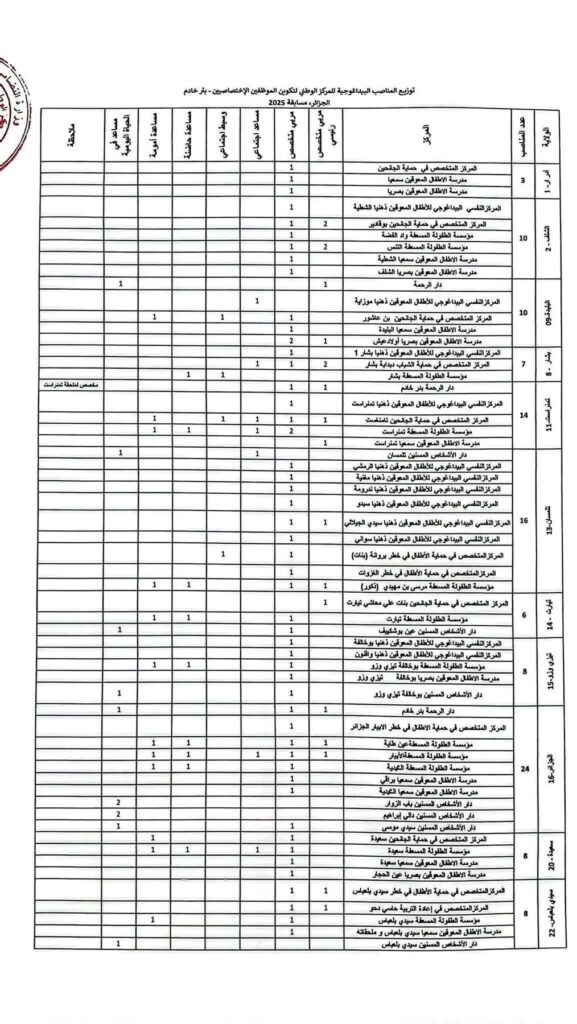 توزيع المناصب البيداغوجية للمركز الوطني لتكوين الموظفين الإختصاصيين - بئر خادم
الجزائر، مسابقة 2025
الولاية | عدد المناصب | المركز | مربي متخصص رئيسي | مربي متخصص | مساعد اجتماعي | وسيط اجتماعي | مساعدة حاضنة | مساعدة أمومة | مساعد في الحياة اليومية | ملاحظة
أدرار - 1 | 3 | المركز المتخصص في حماية الجانحين | 1
مدرسة الاطفال المعوقين سمعيا | 1
مدرسة الاطفال المعوقين بصريا | 1
الشلف - 2 | 10 | المركز النفسي البيداغوجي للأطفال المعوقين ذهنيا الشطية | 1
المركز المتخصص في حماية الجانحين بوقادير | 2 | 1
مؤسسة الطفولة المسعفة واد الفضة | 1
مؤسسة الطفولة المسعفة التنس | 2 | 1
مدرسة الاطفال المعوقين سمعيا الشطية | 1
مدرسة الاطفال المعوقين بصريا الشلف | 1
البليدة-09 | 10 | دار الرحمة | 1 | 1
المركز النفسي البيداغوجي للأطفال المعوقين ذهنيا موزاية | 1
المركز المتخصص في حماية الجانحين بن عاشور | 1 | 1 | 1
مدرسة الاطفال المعوقين سمعيا البليدة | 1
مدرسة الاطفال المعوقين بصريا أولاد عيش | 1 | 2
بشار - 8 | 7 | المركز النفسي البيداغوجي للأطفال المعوقين ذهنيا بشار 1 | 1
المركز المتخصص في حماية الشباب دبدابة بشار | 2 | 1 | 1
مؤسسة الطفولة المسعفة بشار | 1 | 1
تمنراست-11 | 14 | دار الرحمة بئر خادم | 1 | 1 | مخصص لملحقة تمنراست
المركز النفسي البيداغوجي للأطفال المعوقين ذهنيا تمنراست | 1
المركز المتخصص في حماية الجانحين تامنغست | 1 | 1 | 1 | 1 | 1
مؤسسة الطفولة المسعفة تمنراست | 2 | 1 | 1 | 1
مدرسة الاطفال المعوقين سمعيا تمنراست | 1
تلمسان-13 | 16 | دار الأشخاص المسنين تلمسان | 1 | 1
المركز النفسي البيداغوجي للأطفال المعوقين ذهنيا الرمشي | 1
المركز النفسي البيداغوجي للأطفال المعوقين ذهنيا مغنية | 1
المركز النفسي البيداغوجي للأطفال المعوقين ذهنيا ندرومة | 1
المركز النفسي البيداغوجي للأطفال المعوقين ذهنيا سبدو | 1
المركز النفسي البيداغوجي للأطفال المعوقين ذهنيا سيدي الجيلالي | 1 | 1
المركز النفسي البيداغوجي للأطفال المعوقين ذهنيا سواني | 1
المركز المتخصص في حماية الأطفال في خطر بروانة (بنات) | 1 | 1
المركز المتخصص في حماية الأطفال في خطر الغزوات | 1
مؤسسة الطفولة المسعفة مرسى بن مهيدي (ذكور) | 1 | 1 | 1 | 1
تيارت - 14 | 6 | المركز المتخصص في حماية الجانحين بنات علي معاشي تيارت | 1
مؤسسة الطفولة المسعفة تيارت | 1 | 1 | 1
دار الأشخاص المسنين عين بوشكييف | 1 | 1
تيزي وزو-15 | 8 | المركز النفسي البيداغوجي للأطفال المعوقين ذهنيا بوخالفة | 1
المركز النفسي البيداغوجي للأطفال المعوقين ذهنيا واقنون | 1
مؤسسة الطفولة المسعفة بوخالفة تيزي وزو | 1 | 1 | 1
مدرسة الاطفال المعوقين بصريا بوخالفة تيزي وزو | 1
دار الأشخاص المسنين بوخالفة تيزي وزو | 1 | 1
الجزائر-16 | 24 | دار الرحمة بئر خادم | 1 | 1 | 1
المركز المتخصص في حماية الاطفال في خطر الابيار الجزائر | 1
مؤسسة الطفولة المسعفة عين طاية | 1 | 1 | 1 | 1
مؤسسة الطفولة المسعفة الأبيار | 1 | 1 | 1 | 1 | 1
مؤسسة الطفولة المسعفة | 1 | 1 | 1
مدرسة الاطفال المعوقين سمعيا براقي | 1
مدرسة الاطفال المعوقين سمعيا | 1
دار الأشخاص المسنين باب الزوار | 2
دار الأشخاص المسنين دالي إبراهيم | 2
دار الأشخاص المسنين سيدي موسى | 1 | 1
سعيدة - 20 | 8 | المركز المتخصص في حماية الجانحين سعيدة | 1 | 1
مؤسسة الطفولة المسعفة سعيدة | 1 | 1 | 1 | 1
مدرسة الاطفال المعوقين سمعيا سعيدة | 1
مدرسة الاطفال المعوقين بصريا عين الحجار | 1
سيدي بلعباس-22 | 8 | المركز المتخصص في حماية الأطفال في خطر سيدي بلعباس | 1 | 1
المركز المتخصص في إعادة التربية حاسي دحو | 1 | 1
مؤسسة الطفولة المسعفة سيدي بلعباس | 1 | 1
مدرسة الاطفال المعوقين سمعيا سيدي بلعباس و ملحقاته | 1
دار الأشخاص المسنين سيدي بلعباس | 1